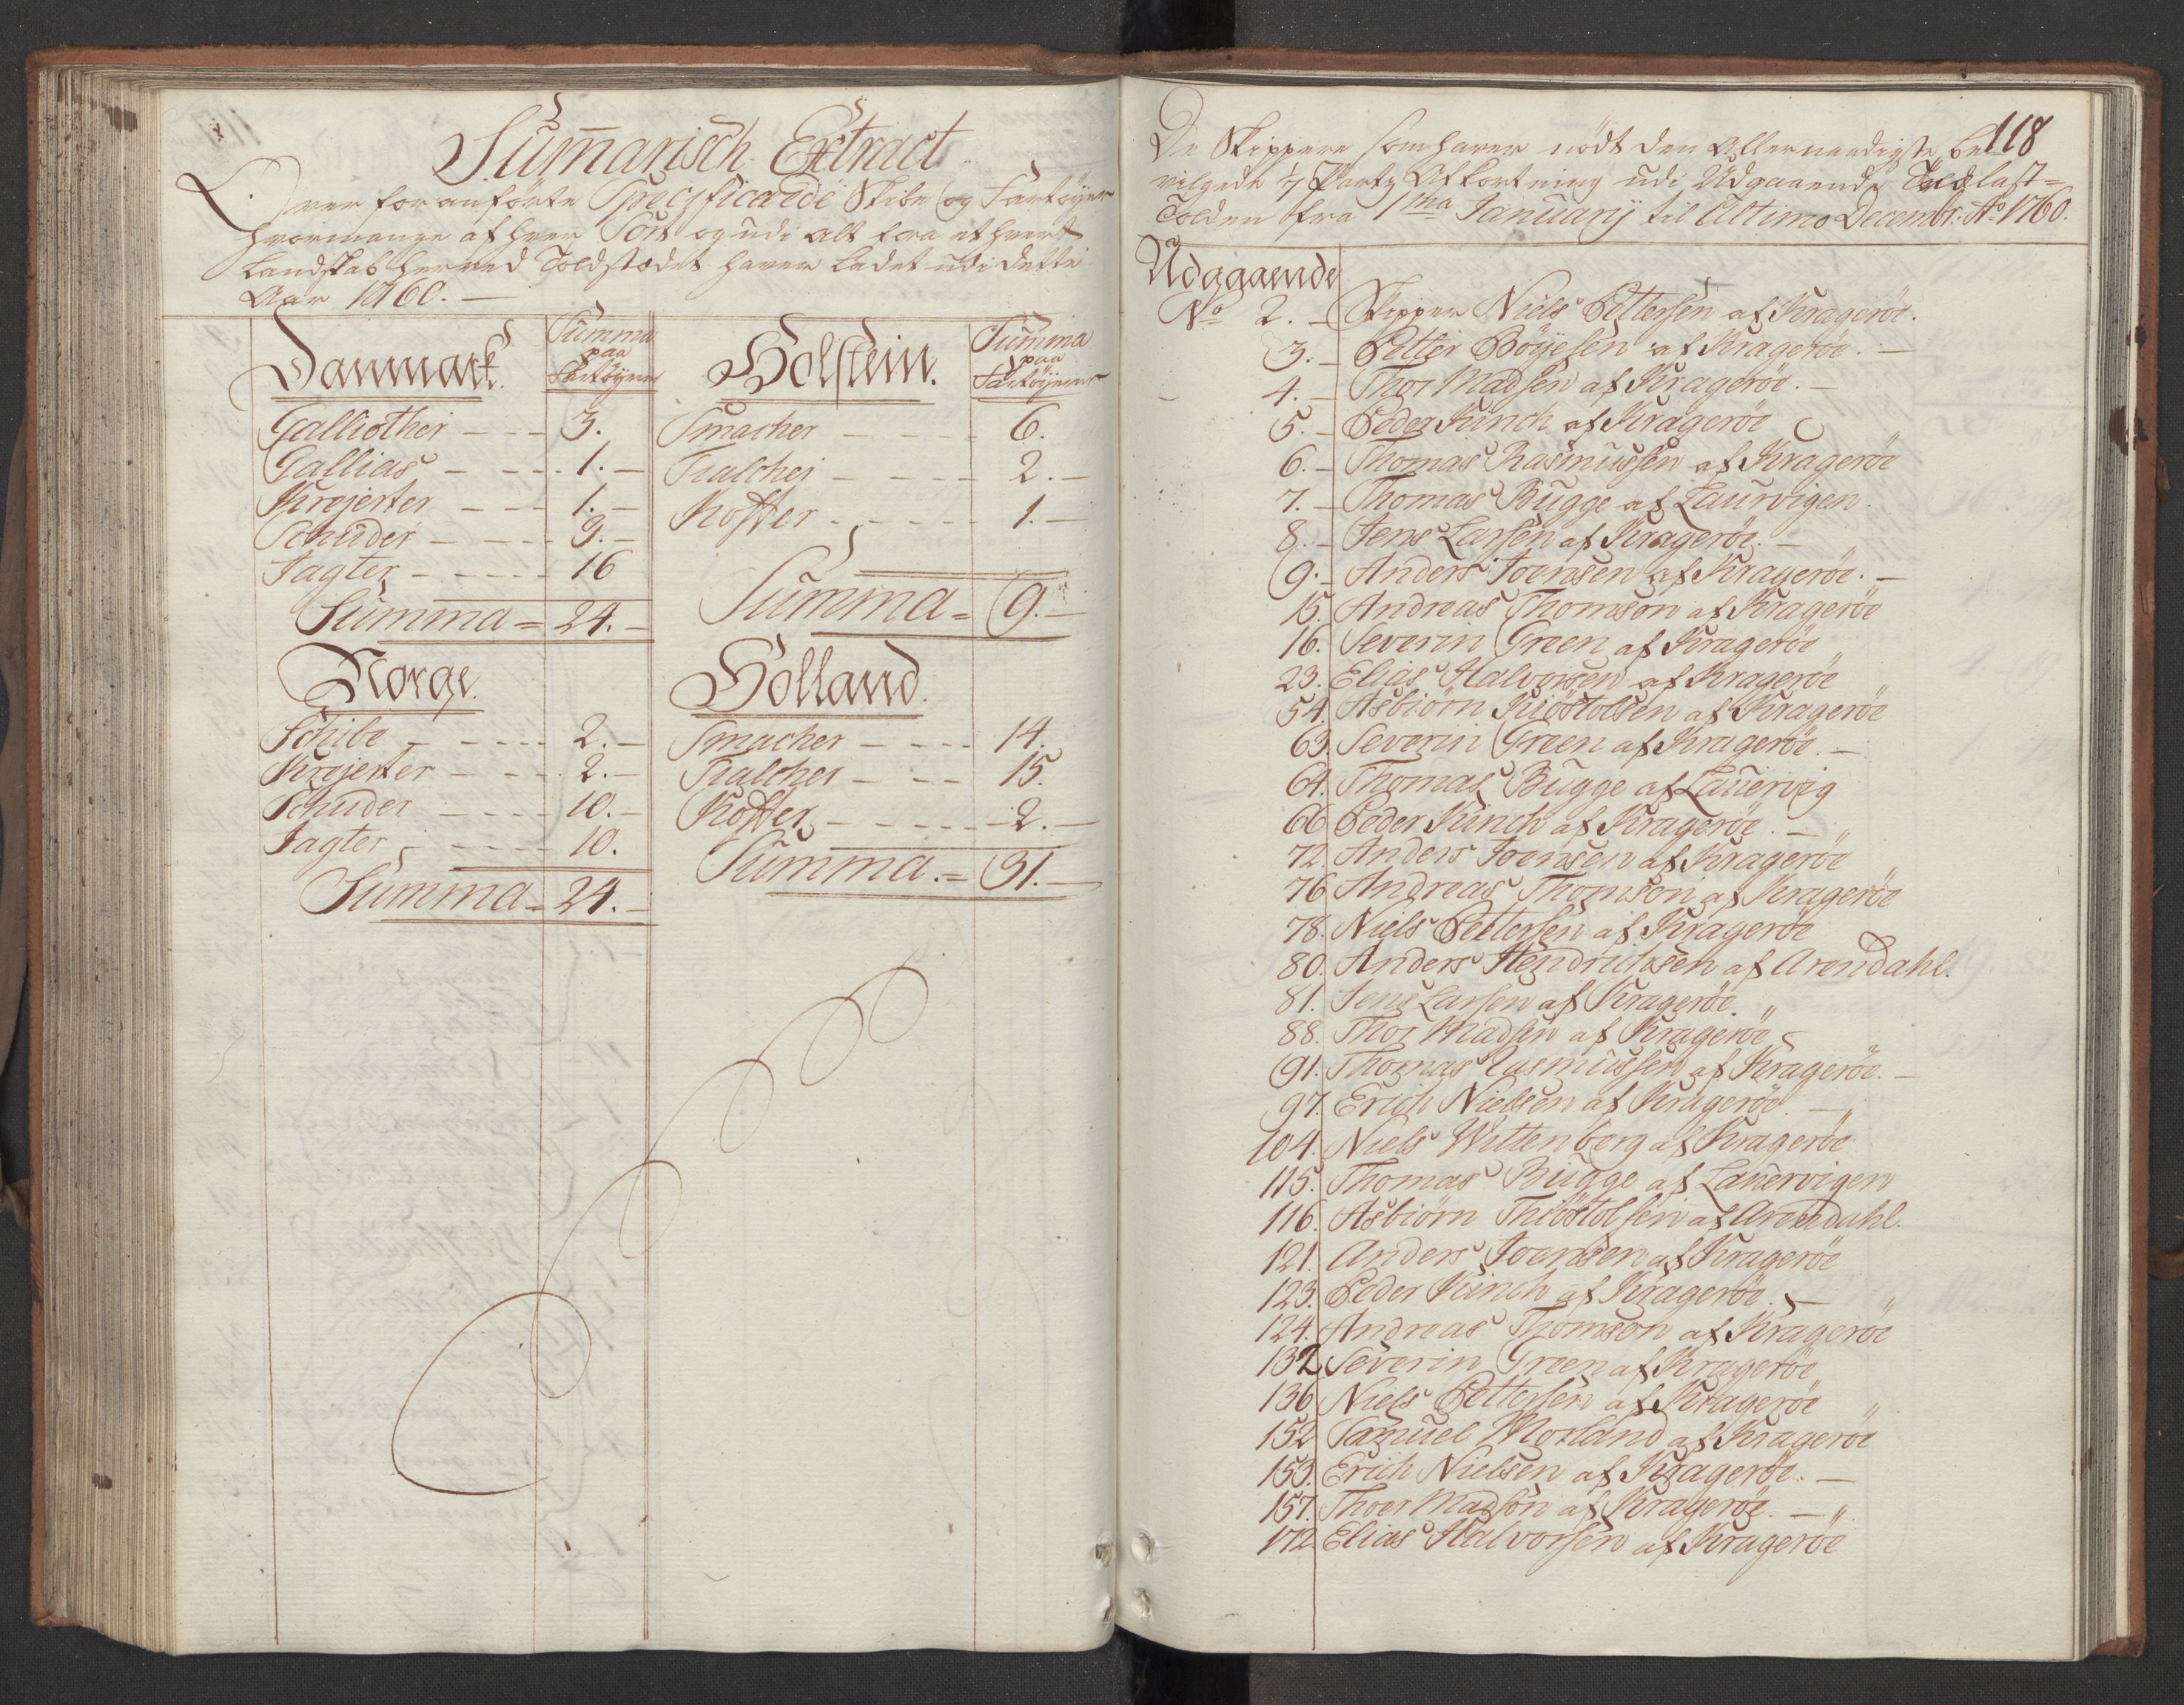 Summarisch Extract
Over foranförte Specificærede Skibe og Fartøyer
hvormange af hver Sort og udi alt fra ethvert
Landskab herved Toldstædet haver ladet udi dette
Aar 1760.
Danmark.
Summa
paa
Fartøyerne
Galliother - - - 3.
Gallias - - - 1.
Krejerter - - - 1.
Schuder - - - 9.
Jagter - - - - 16
Summa = 24.
Norge.
Schibe - - - - 2.
Krejerter - - - 2.
Schuder - - - - 10.
Jagter - - - - 10.
Summa = 24.
Holstein.
Summa
paa
Fartøyerne
Smacher - - - - 6.
Tialcher - - - - 2.
Koffer - - - - 1.
Summa = 9.
Holland.
Smacher - - - - 14.
Tialcher - - - 15.
Koffer - - - - 2.
Summa. = 31.
118
De Skippere som haver nödt den Allernaadigste be-
vilgede 1/7 Parts Afkortning udi Udgaaende Told last-
Tolden fra 1ma Januarij til Ultimo Decembr: Ao 1760.
Udgaaende
No 2. Skipper Niels Pettersen af Kragerøe.
3. Petter Böyesen af Kragerøe.
4. Thor Madsen af Kragerøe.
5. Peder Kinch af Kragerøe
6. Thomas Rasmussen af Kragerøe
7. Thomas Bugge af Laurvigen
8. Jens Larsen af Kragerøe.
9. Anders Joensen af Kragerøe.
15. Andreas Thomson af Kragerøe
16. Severin Green af Kragerøe
23. Elias Halvorsen af Kragerøe
54. Asbiörn Kiöstolsen af Kragerøe
63. Severin Green af Kragerøe.
64. Thomas Bugge af Lauervig
66 Peder Kinch af Kragerøe.
72. Anders Joensen af Kragerøe
76 Andreas Thomson af Kragerøe
78. Niels Pettersen af Kragerøe
80. Anders Hendrichsen af Arendahl.
81. Jens Larsen af Kragerøe.
88. Thor Madsen af Kragerøe
91. Thomas Rasmussen af Kragerøe.
97. Erich Nielsen af Kragerøe.
104. Niels Wittenberg af Kragerøe
115. Thomas Bugge af Lauervigen
116. Asbiörn Thiöstolsen af Arendahl.
121. Anders Joensen af Kragerøe
123. Peder Kinch af Kragerøe.
124. Andreas Thomson af Kragerøe
132 Severin Green af Kragerøe
136 Niels Pettersen af Kragerøe
152 Samuel Morland af Kragerøe
153. Erich Nielsen af Kragerøe.
157. Thoer Madsön af Kragerøe.
172. Elias Halvorsen af Kragerøe